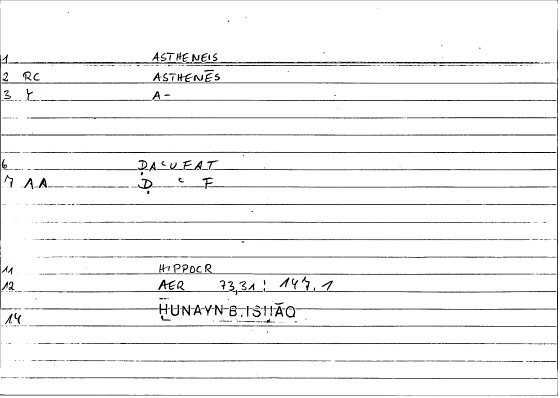 1 ASTHENEIS
2 RC ASTHENĒS
3 A-
6 ḌAʿUFAT
7 AA Ḍ ʿ F
11 HIPPOCR
12 AER 73,31 : 147,1
14 ḤUNAYN B. ISḤĀQ